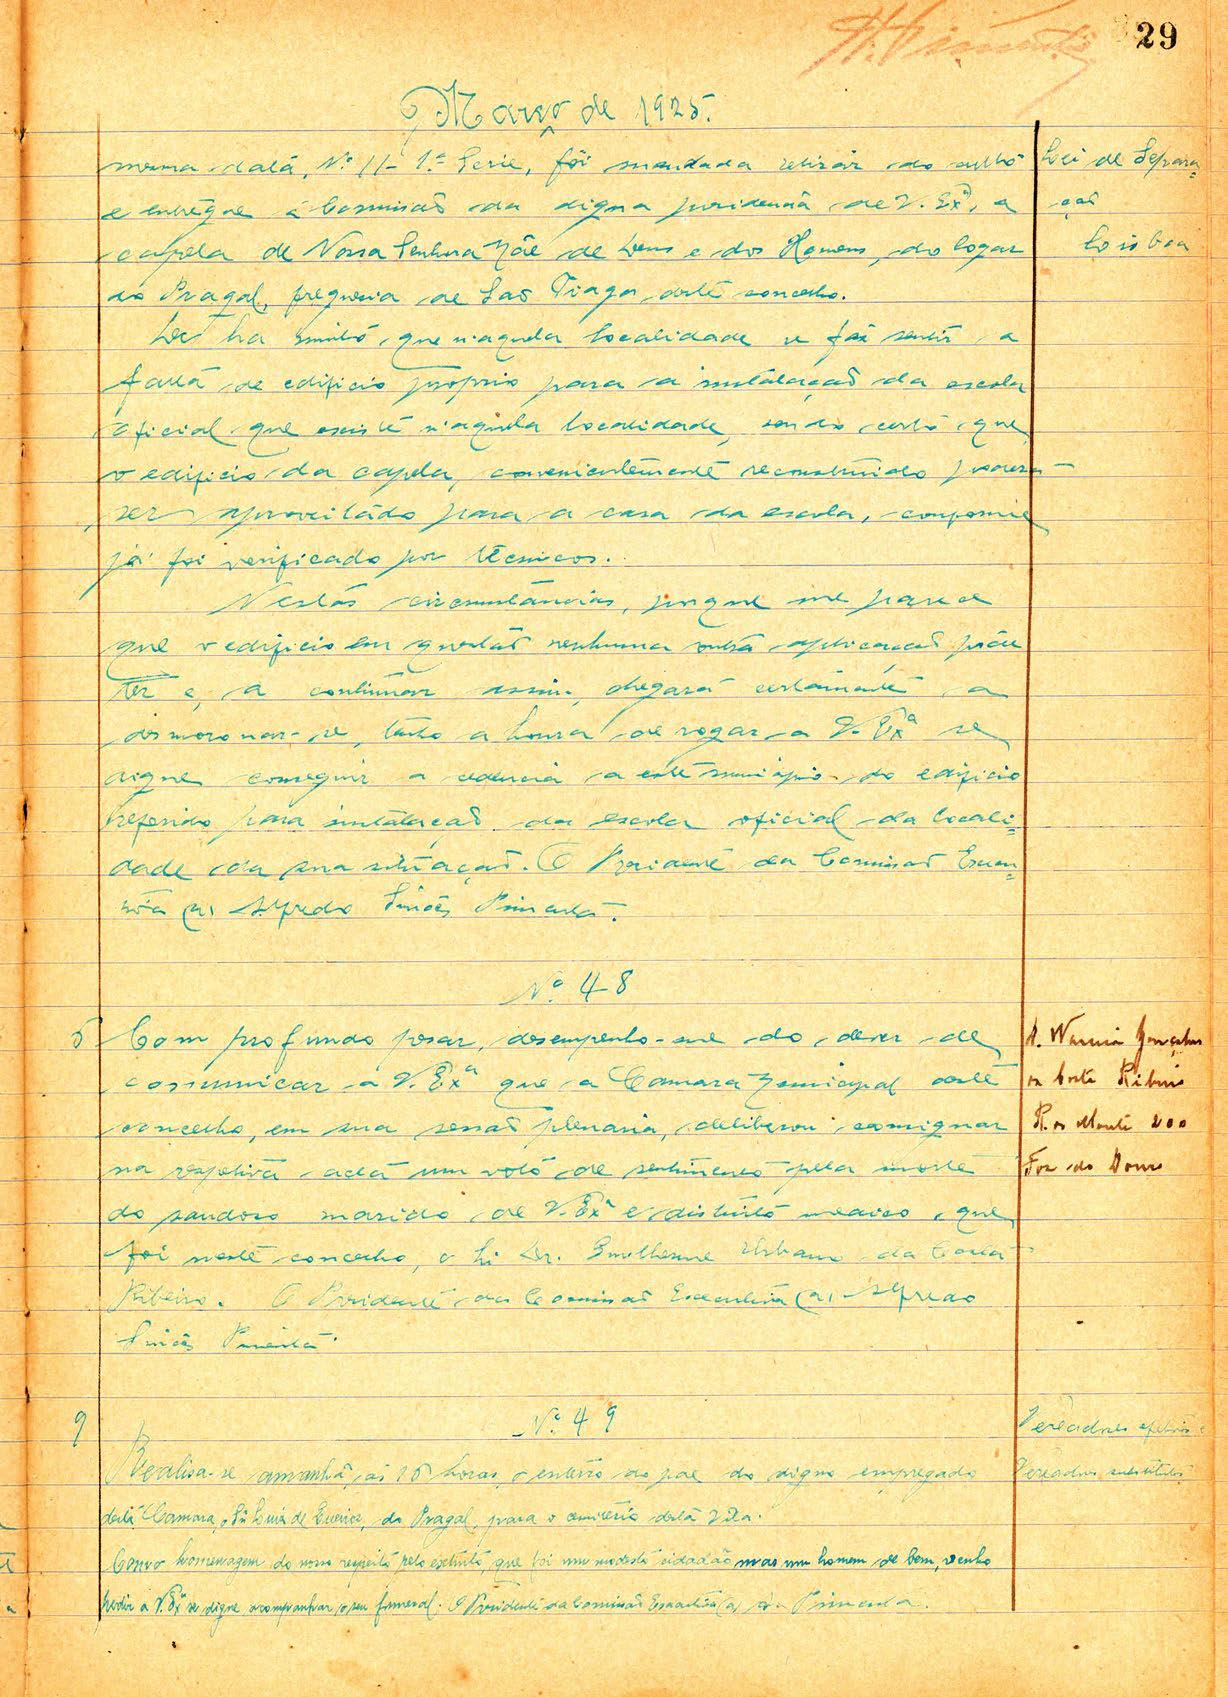 29
Março de 1925.
mesma data, Nº 11- 1ª Serie, foi mandada retirar do culto
e entregue á Comissaõ da digna presidencia de V. Exª, a
capela de Nossa Senhora Mãe de Deus e dos Homens, do logar
do Pragal, freguesia de Saõ Tiago, deste concelho.
De ha muito, que n'aquela localidade se faz sentir a
falta de edificio proprio para a instalaçaõ da escola
oficial que existe n'aquela localidade, sendo certo que,
o edificio da capela, convenientemente reconstruido poderá
ser aproveitado para a casa da escola, conforme
já foi verificado por técnicos.
Nestas circumstancias, porque me parece
que o edificio em questaõ nenhuma outra aplicaçaõ póde
ter e, a continuar assim, chegará certamente a
desmoronar-se, tenho a honra de rogar a V. Exª se
digne conseguir a cedencia a este municipio do edificio
referido para instalaçaõ da escola oficial da locali-
dade da sua situaçaõ. O Presidente da Comissaõ Execu-
tiva (a) Alfredo Simões Pimenta.
Lei de Separa-
çaõ
Lisboa
Nº 48
5 Com profundo pesar, desempenho-me do dever de
comunicar a V. Exª que a Camara Municipal deste
concelho, em sua sessaõ plenaria, deliberou consignar
na respetiva acta um voto de sentimento pela morte
do saudoso marido de V. Exª e distinto medico que
foi neste concelho, o Dr. Guilherme Urbano da Costa
Ribeiro. O Presidente da Comissaõ Executiva (a) Alfredo
Simões Pimenta.
Gonçalves
da Costa Ribeiro
R. do Monte 200
Foz do Douro
Nº 49
9 Realisa-se amanhã, ás 15 horas, o enterro do pae do digno empregado
desta Camara, Sr. Luiz de Queiroz, do Pragal, para o cemiterio desta Vila.
Como homenagem do nosso respeito pelo extinto, que foi um modesto cidadão mas um homem de bem, venho
pedir a V. Exª se digne acompanhar o seu funeral. O Presidente da Comissaõ Executiva (a) Pimenta.
Vereadores efetivos e
Vereadores substitutos